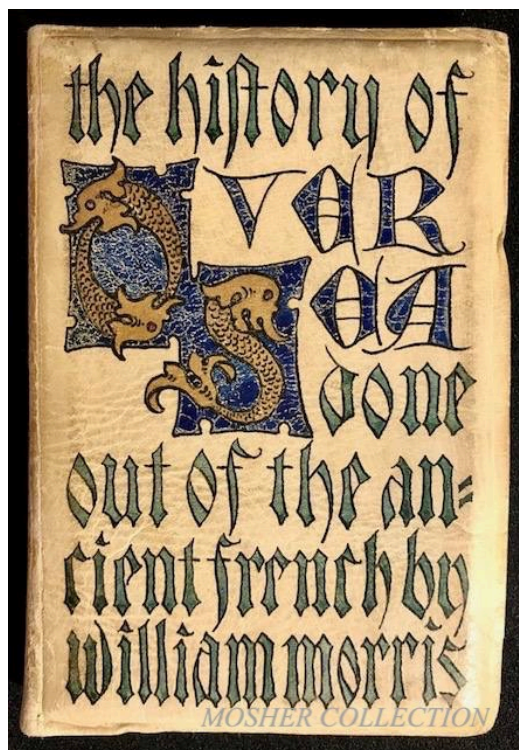 the hiſtory of
OVER
SEA
done
out of the an=
cient french by
william morris
MOSHER COLLECTION